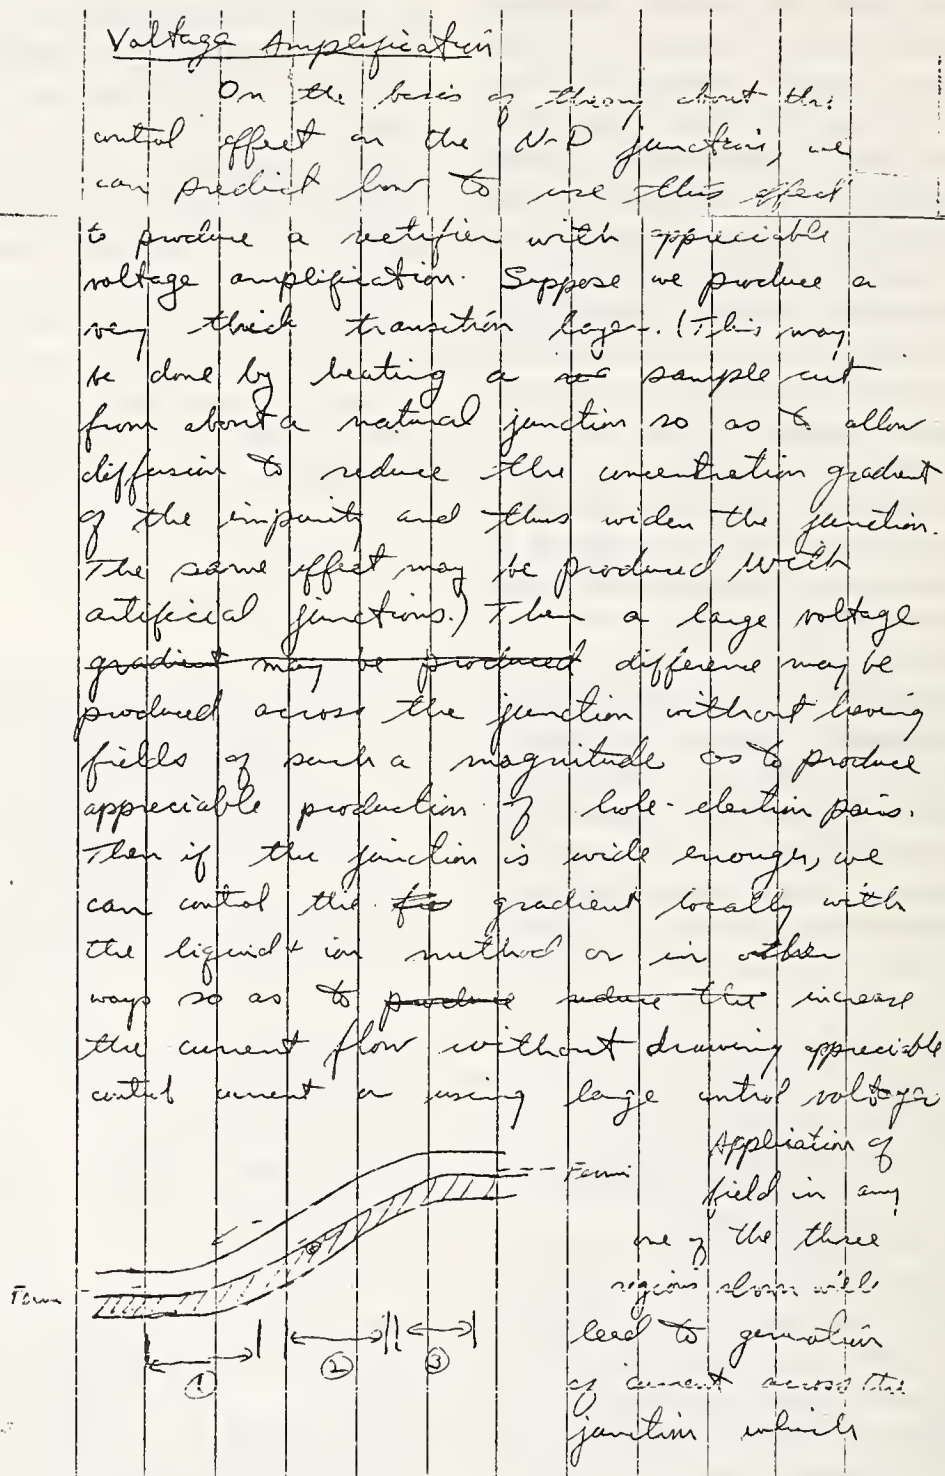 Voltage Amplification
On the basis of theory about the
control effect on the N-P junction, we
can predict how to use this effect
to produce a rectifier with appreciable
voltage amplification. Suppose we produce a
very thick transition layer. (This may
be done by heating a sample cut
from about a natural junction so as to allow
diffusion to reduce the concentration gradient
of the impurity and thus widen the junction.
The same effect may be produced with
artificial junctions.) Then a large voltage
gradient may be produced difference may be
produced across the junction without having
fields of such a magnitude as to produce
appreciable production of hole-electron pairs.
Then if the junction is wide enough, we
can control the gradient locally with
the liquid + ion method or in other
ways so as to produce reduce the increase
the current flow without drawing appreciable
control current or using large control voltages
Application of
--- Fermi
field in any
one of the three
Fermi
regions shown will
lead to generation
① ② ③
of current across the
junction which